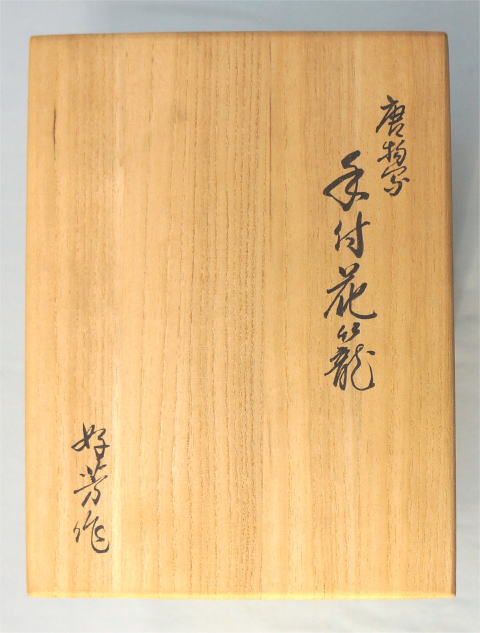 唐物写
手付花籠
好芳作